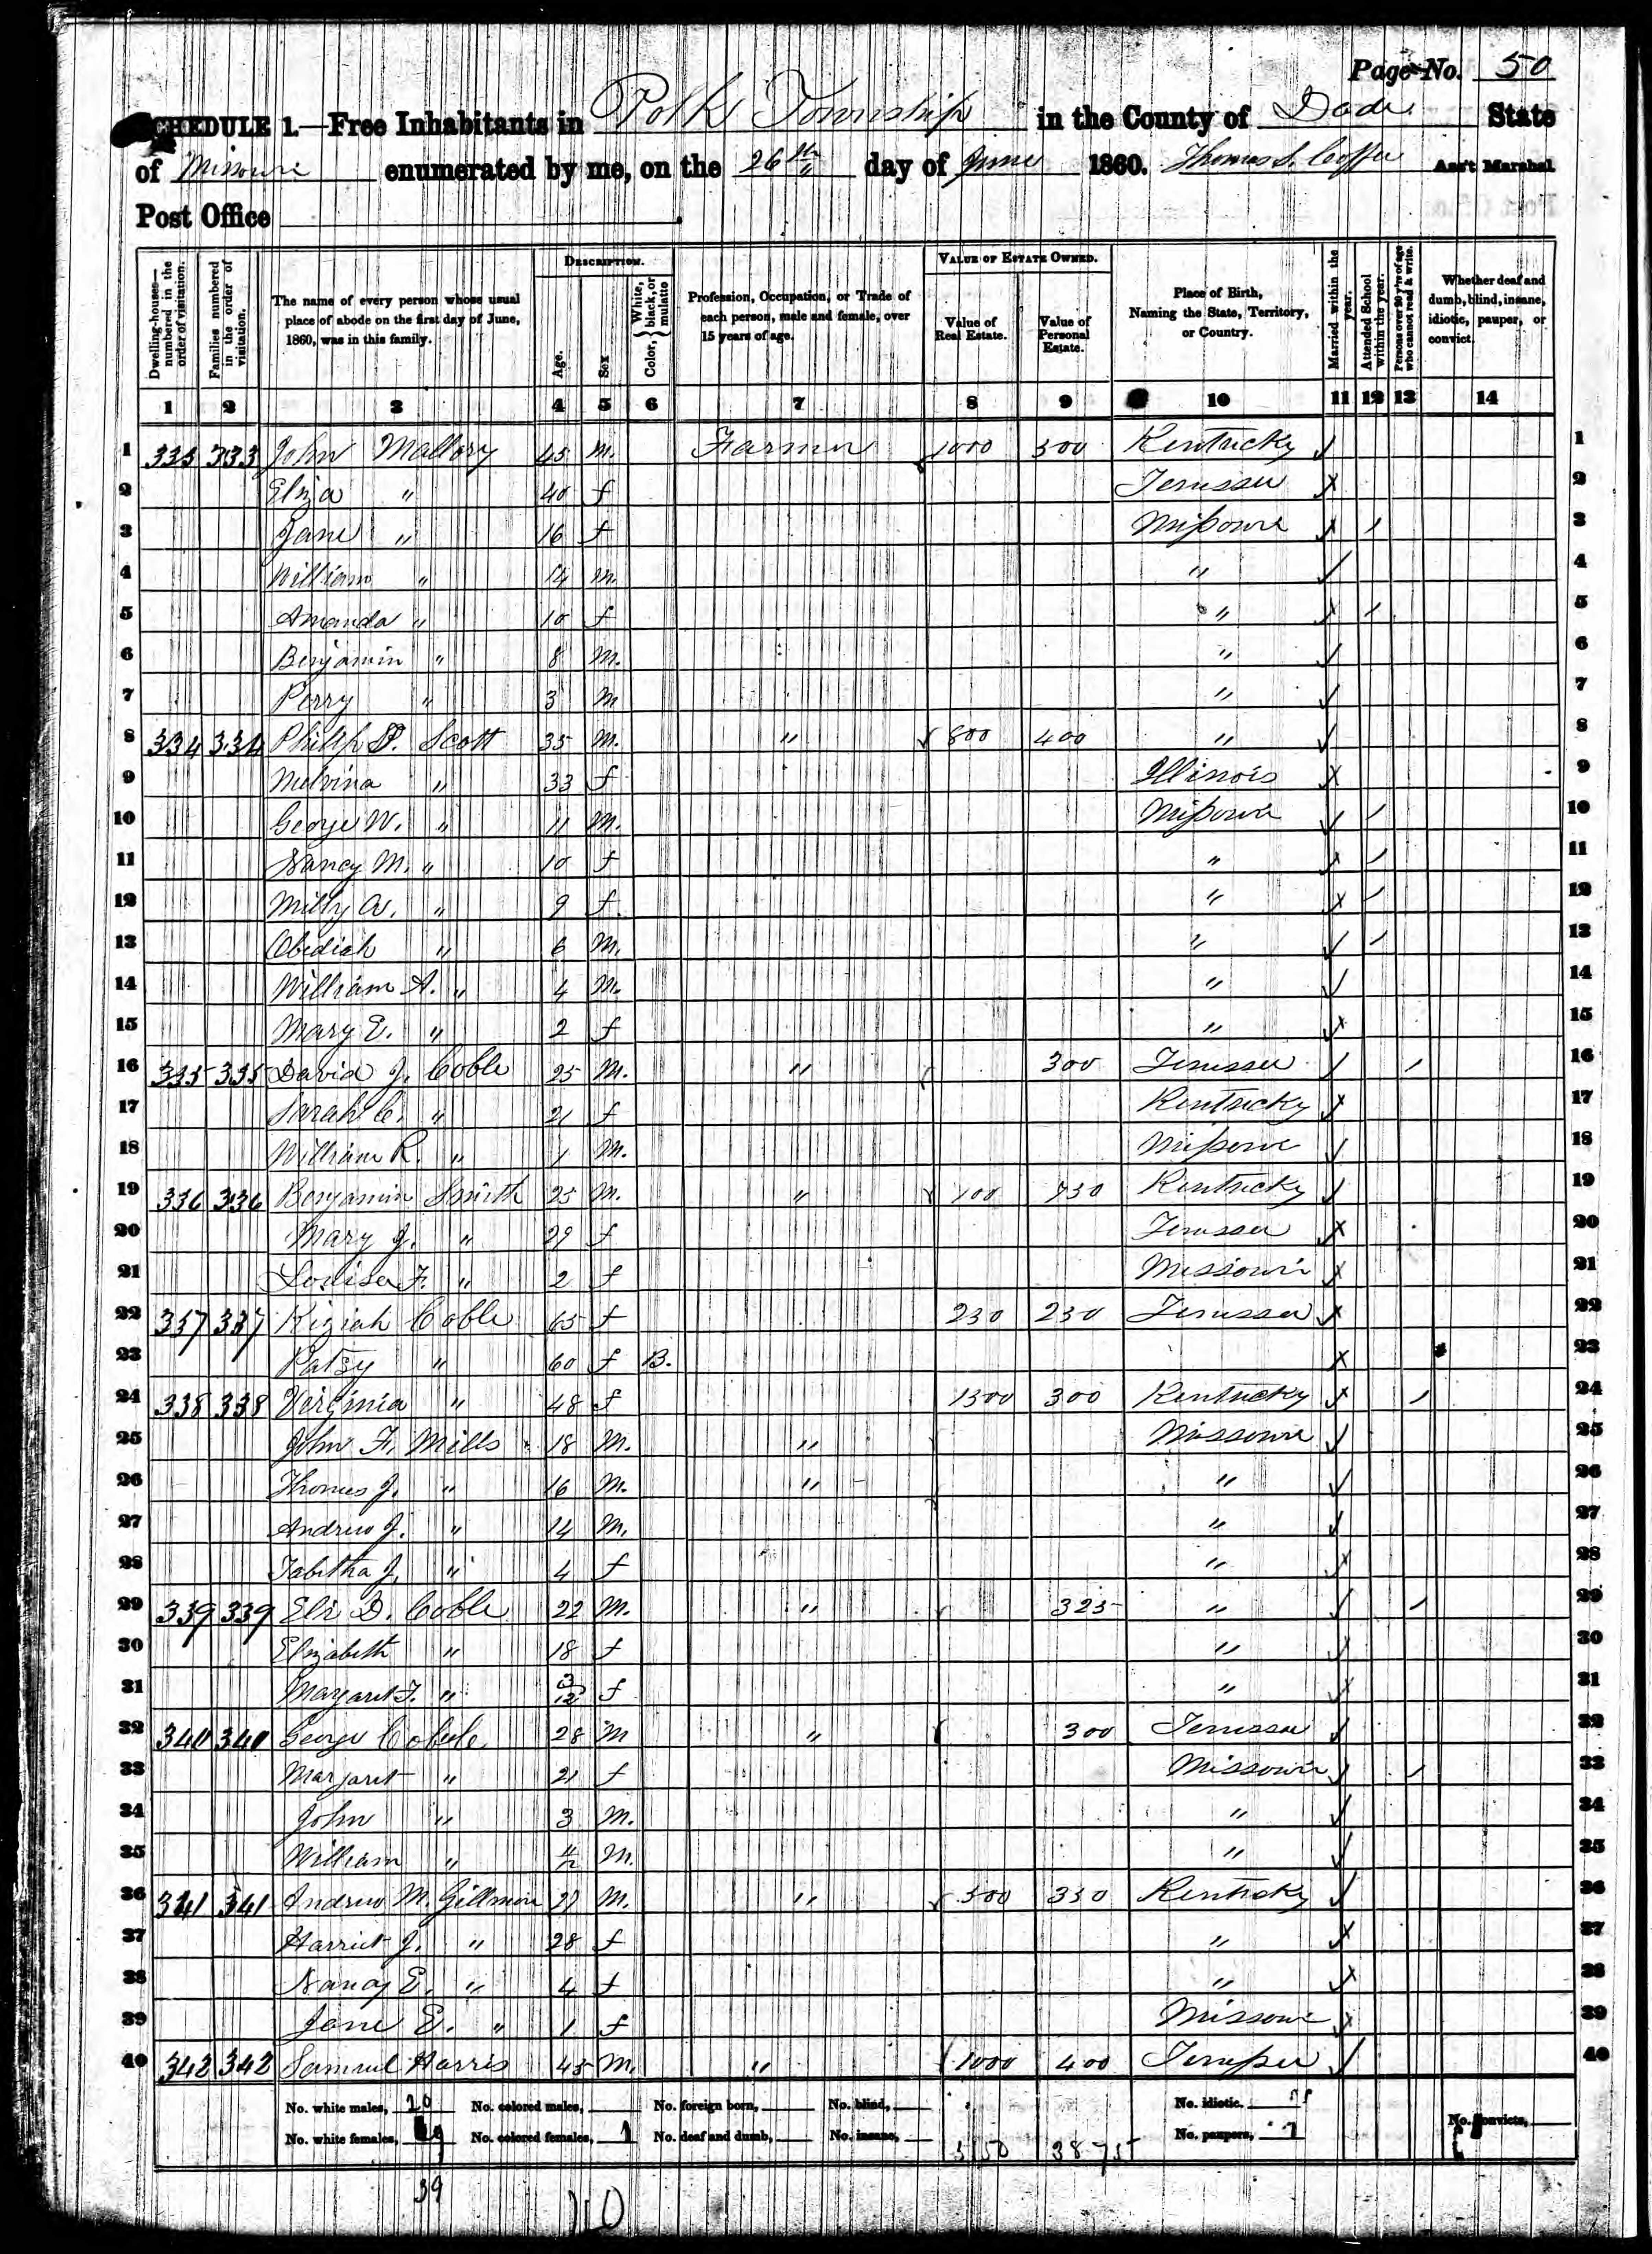 Page No. 50
SCHEDULE 1.—Free Inhabitants in Polk Township in the County of Dade State
of Missouri enumerated by me, on the 26th day of June 1860. Thomas S. Coffee Ass't Marshal
Post Office
Dwelling-houses—numbered in the order of visitation. Families numbered in the order of visitation. The name of every person whose usual place of abode on the first day of June, 1860, was in this family. Description. Age. Sex Color, White, black, or mulatto Profession, Occupation, or Trade of each person, male and female, over 15 years of age. Value of Estate Owned. Value of Real Estate. Value of Personal Estate. Place of Birth, Naming the State, Territory, or Country. Married within the year. Attended School within the year. Persons over 20 y'rs of age who cannot read & write. Whether deaf and dumb, blind, insane, idiotic, pauper, or convict.
1 2 3 4 5 6 7 8 9 10 11 12 13 14
1 333 333 John Mallory 45 M. Farmer 1000 500 Kentucky 1
2 Eliza " 40 f Tenessee 2
3 Jane " 16 f Missouri / 3
4 William " 14 M. " 4
5 Amanda " 10 f " / 5
6 Benjamin " 8 M. " 6
7 Perry " 3 M " 7
8 334 334 Philip D. Scott 35 M. " 800 400 " 8
9 Melvina " 33 f Illinois 9
10 George W. " 11 M. Missouri / 10
11 Nancy M. " 10 f " / 11
12 Milly A. " 9 f. " / 12
13 Obediah " 6 M. " / 13
14 William A. " 4 M. " 14
15 Mary E. " 2 f " 15
16 335 335 David J. Coble 25 M. " 300 Tenessee / 16
17 Sarah C. " 21 f Kentucky 17
18 William R. " 1 M. Missouri 18
19 336 336 Benjamin Smith 25 M. " 100 750 Kentucky 19
20 Mary J. " 29 f Tenessee 20
21 Louisa F. " 2 f Missouri 21
22 337 337 Kiziah Coble 65 f 250 250 Tenessee 22
23 Patsy " 60 f B. 23
24 338 338 Virginia " 48 f 1500 300 Kentucky / 24
25 John F. Mills 18 M. " Missouri 25
26 Thomas J. " 16 M. " " 26
27 Andrew J. " 14 M. " 27
28 Tabitha J. " 4 f " 28
29 339 339 Eli D. Coble 22 M. " 325 " / 29
30 Elizabeth " 18 f " 30
31 Margaret F. " 3/12 f " 31
32 340 340 George Coble 28 M " 300 Tenessee 32
33 Margaret " 21 f Missouri / 33
34 John " 3 M. " 34
35 William " M. " 35
36 341 341 Andrew M. Gillmore 27 M. " 500 350 Kentucky 36
37 Harriet J. " 28 f " 37
38 Nancy E. " 4 f " 38
39 Jane E. " 1 f Missouri 39
40 342 342 Samuel Harris 45 M. " 1000 400 Tenessee 40
No. white males, 20 No. colored males, No. foreign born, No. blind, No. idiotic.
No. white females, 19 No. colored females, 1 No. deaf and dumb, No. insane, No. paupers, No. convicts,
5150 3875
39